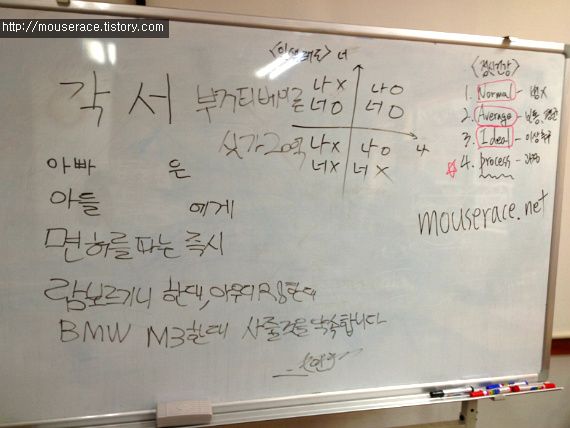 http://mouserace.tistory.com
각서
부가티베이론
싯가 20억
아빠 은
아들 에게
면허를 따는 즉시
람보르기니 한대, 아우디 R8 한대
BMW M3 한대 사줄것을 약속합니다
너
나 X 나 O
너 O 너 O
4
나 X 나 O
너 X 너 X
<정신건강>
1. Normal - 병X
2. Average - 보통, 평균
3. Ideal - 이상추구
4. process - 과정
mouserace.net